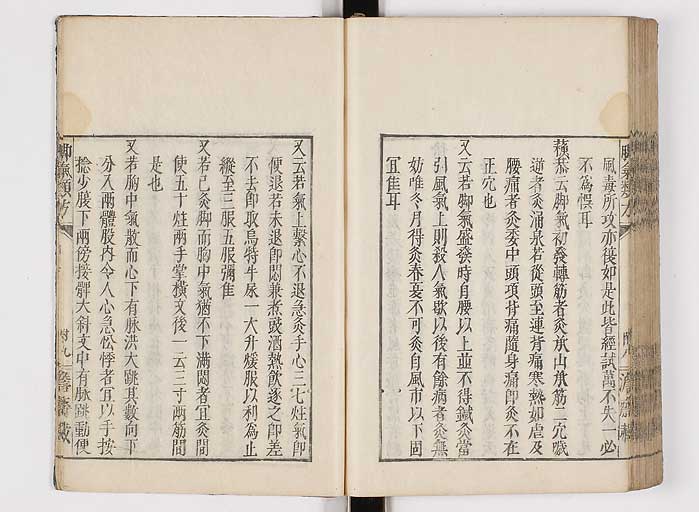 風毒所攻亦復如是此皆經試萬不失一必
不為悞耳
蘇恭云脚氣初發轉筋者灸承山承筋二穴噦
逆者灸涌泉若從頭至連背痛寒熱如虐及
腰痛者灸委中頭項背痛隨身痛即灸不在
正穴也
又云若脚氣盛發時自腰以上並不得鍼灸當
引風氣上則殺人氣歇以後有餘病者灸無
妨唯冬月得灸春夏不可灸自風市以下固
宜隹耳
脚氣類方
附九
又云若氣上繫心不退急灸手心三七炷氣即
便退若未退即悶兼煮豉酒熱飲逐之即差
不去即取烏特牛尿一大升煖服以利為止
縱至三服五服彌隹
又若已灸脚而胸中氣猶不下滿悶者宜灸間
使五十炷兩手掌橫文後一云三寸兩筋間
是也
又若胸中氣散而心下有脉洪大跳其數向下
分入兩髀股內令人心急忪悸者宜以手按
捻少腹下兩傍接髀大斜文中有脉跳動便